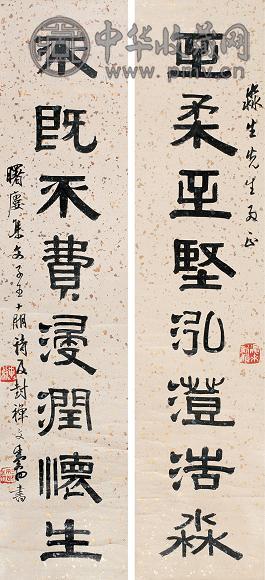 淼生先生 正
至柔至堅泓澄浩淼
既不費浸潤懷生
曙廔集文子王十朋詩及封禪文 書
中华收藏网